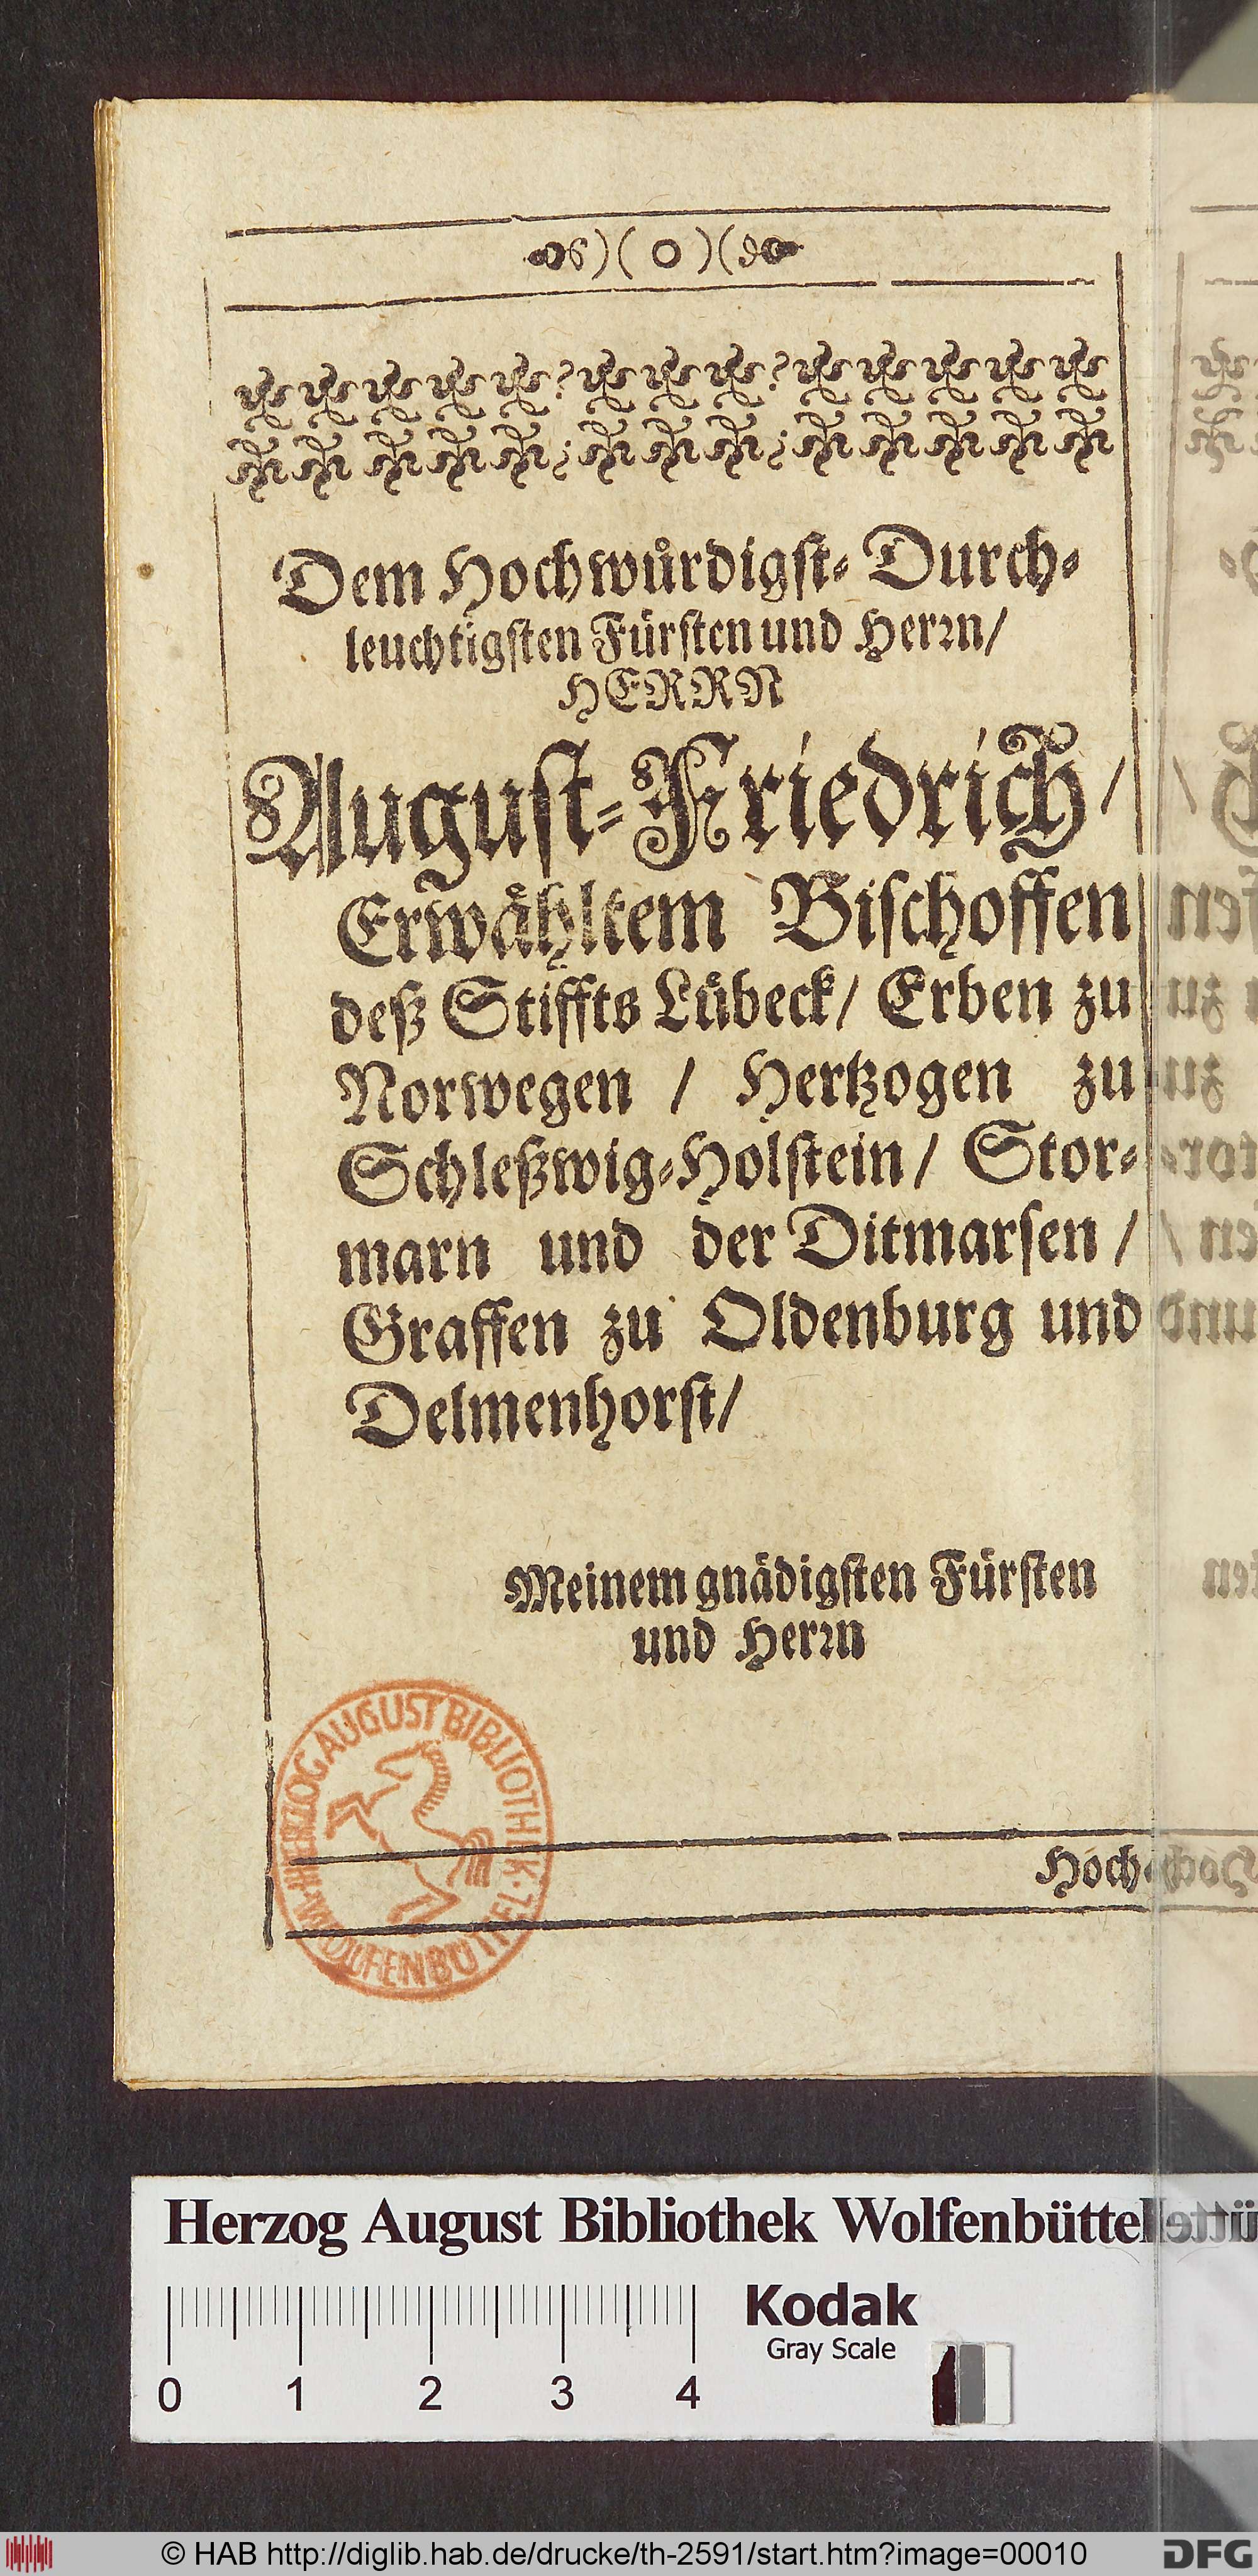 )( O )(
Dem Hochwuͤrdigst- Durch-
leuchtigsten Fürsten und Herꝛn/
HERRN
August-Friedrich/
Erwaͤhltem Bischoffen
deß Stiffts Luͤbeck/ Erben zu
Norwegen / Hertzogen zu
Schleßwig-Holstein/ Stor-
marn und der Ditmarsen /
Graffen zu Oldenburg und
Delmenhorst/
Meinem gnädigsten Fürsten
und Herꝛn
HERZOG AUGUST BIBLIOTHEK
WOLFENBÜTTEL
Hoch-
Herzog August Bibliothek Wolfenbüttel
Kodak
Gray Scale
0 1 2 3 4
© HAB http://diglib.hab.de/drucke/th-2591/start.htm?image=00010
DFG